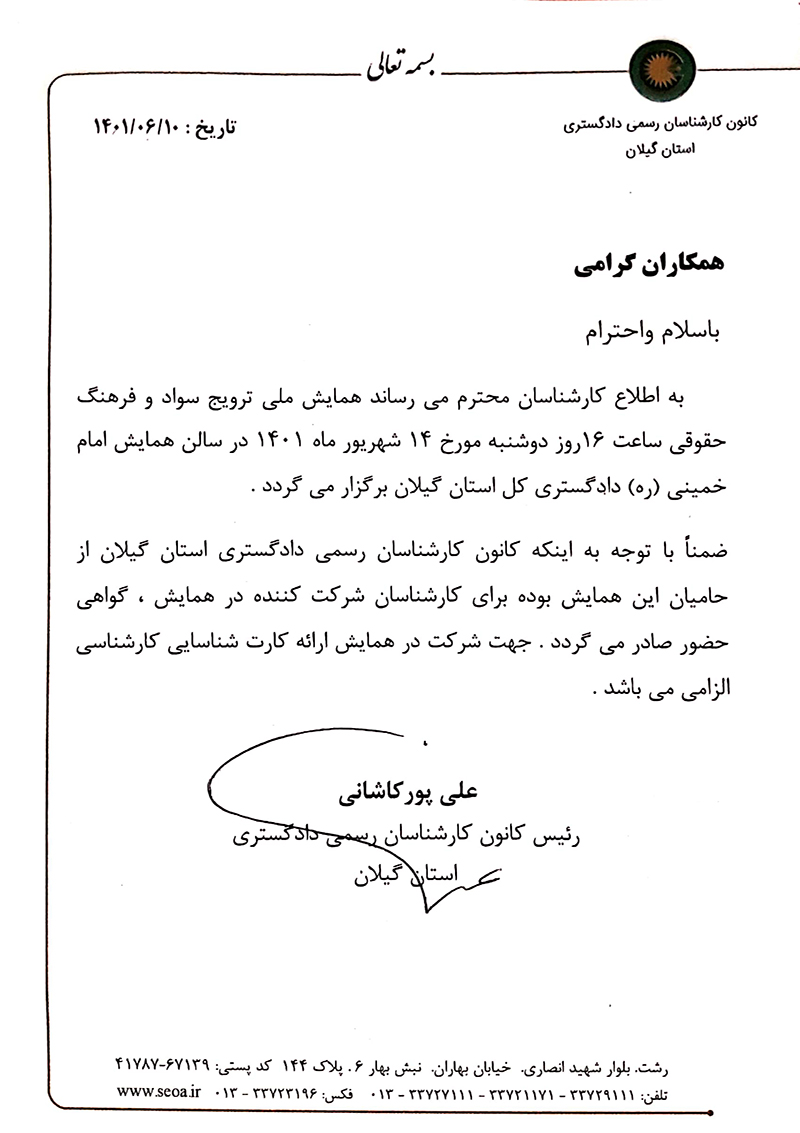 بسمه تعالی
کانون کارشناسان رسمی دادگستری
استان گیلان
تاریخ : ۱۴۰۱/۰۶/۱۰
همکاران گرامی
باسلام واحترام
به اطلاع کارشناسان محترم می رساند همایش ملی ترویج سواد و فرهنگ
حقوقی ساعت ۱۶روز دوشنبه مورخ ۱۴ شهریور ماه ۱۴۰۱ در سالن همایش امام
خمینی (ره) دادگستری کل استان گیلان برگزار می گردد .
ضمناً با توجه به اینکه کانون کارشناسان رسمی دادگستری استان گیلان از
حامیان این همایش بوده برای کارشناسان شرکت کننده در همایش ، گواهی
حضور صادر می گردد . جهت شرکت در همایش ارائه کارت شناسایی کارشناسی
الزامی می باشد .
علی پورکاشانی
رئیس کانون کارشناسان رسمی دادگستری
استان گیلان
رشت. بلوار شهید انصاری. خیابان بهاران. نبش بهار ۶. پلاک ۱۴۴ کد پستی: ۶۷۱۳۹-۴۱۷۸۷
تلفن: ۳۳۷۲۹۱۱۱ - ۳۳۷۲۱۱۷۱ - ۳۳۷۲۷۱۱۱ - ۰۱۳ فکس: ۳۳۷۲۳۱۹۶ - ۰۱۳ www.seoa.ir